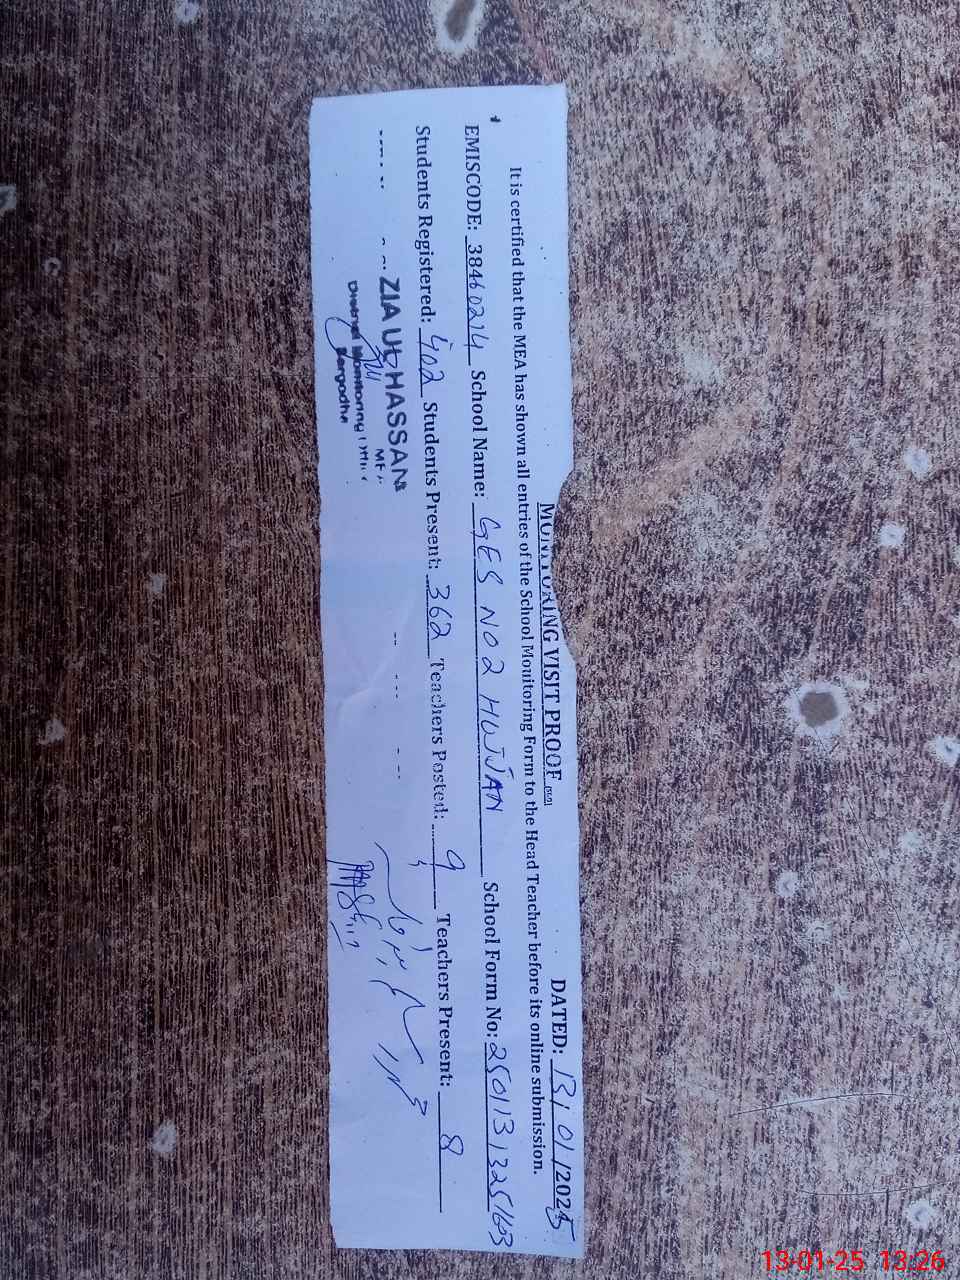 MONITORING VISIT PROOF
DATED: 13/01/2025
It is certified that the MEA has shown all entries of the School Monitoring Form to the Head Teacher before its online submission.
EMISCODE: 38460214 School Name: GES NO2 HUJJAN School Form No: 2501131325163
Students Registered: 402 Students Present: 362 Teachers Posted: 9 Teachers Present: 8
ZIA UL HASSAN
MEA
District Monitoring Office
Sargodha
13-01-25 13:26